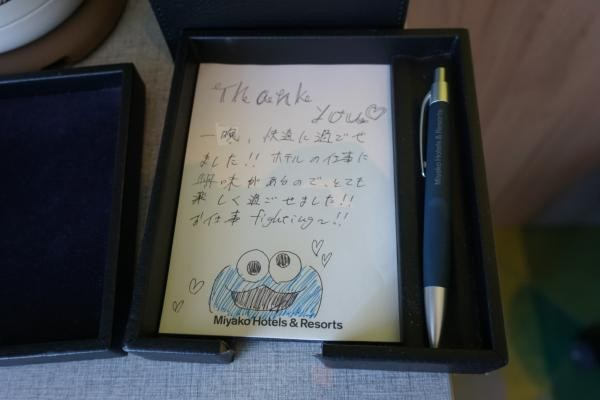 Thank
you♡
一晩、快適に過ごせ
ました!! ホテルの仕事に
興味があるので、とても
楽しく過ごせました!!
お仕事 fighting〜!!
Miyako Hotels & Resorts
Miyako Hotels & Resorts